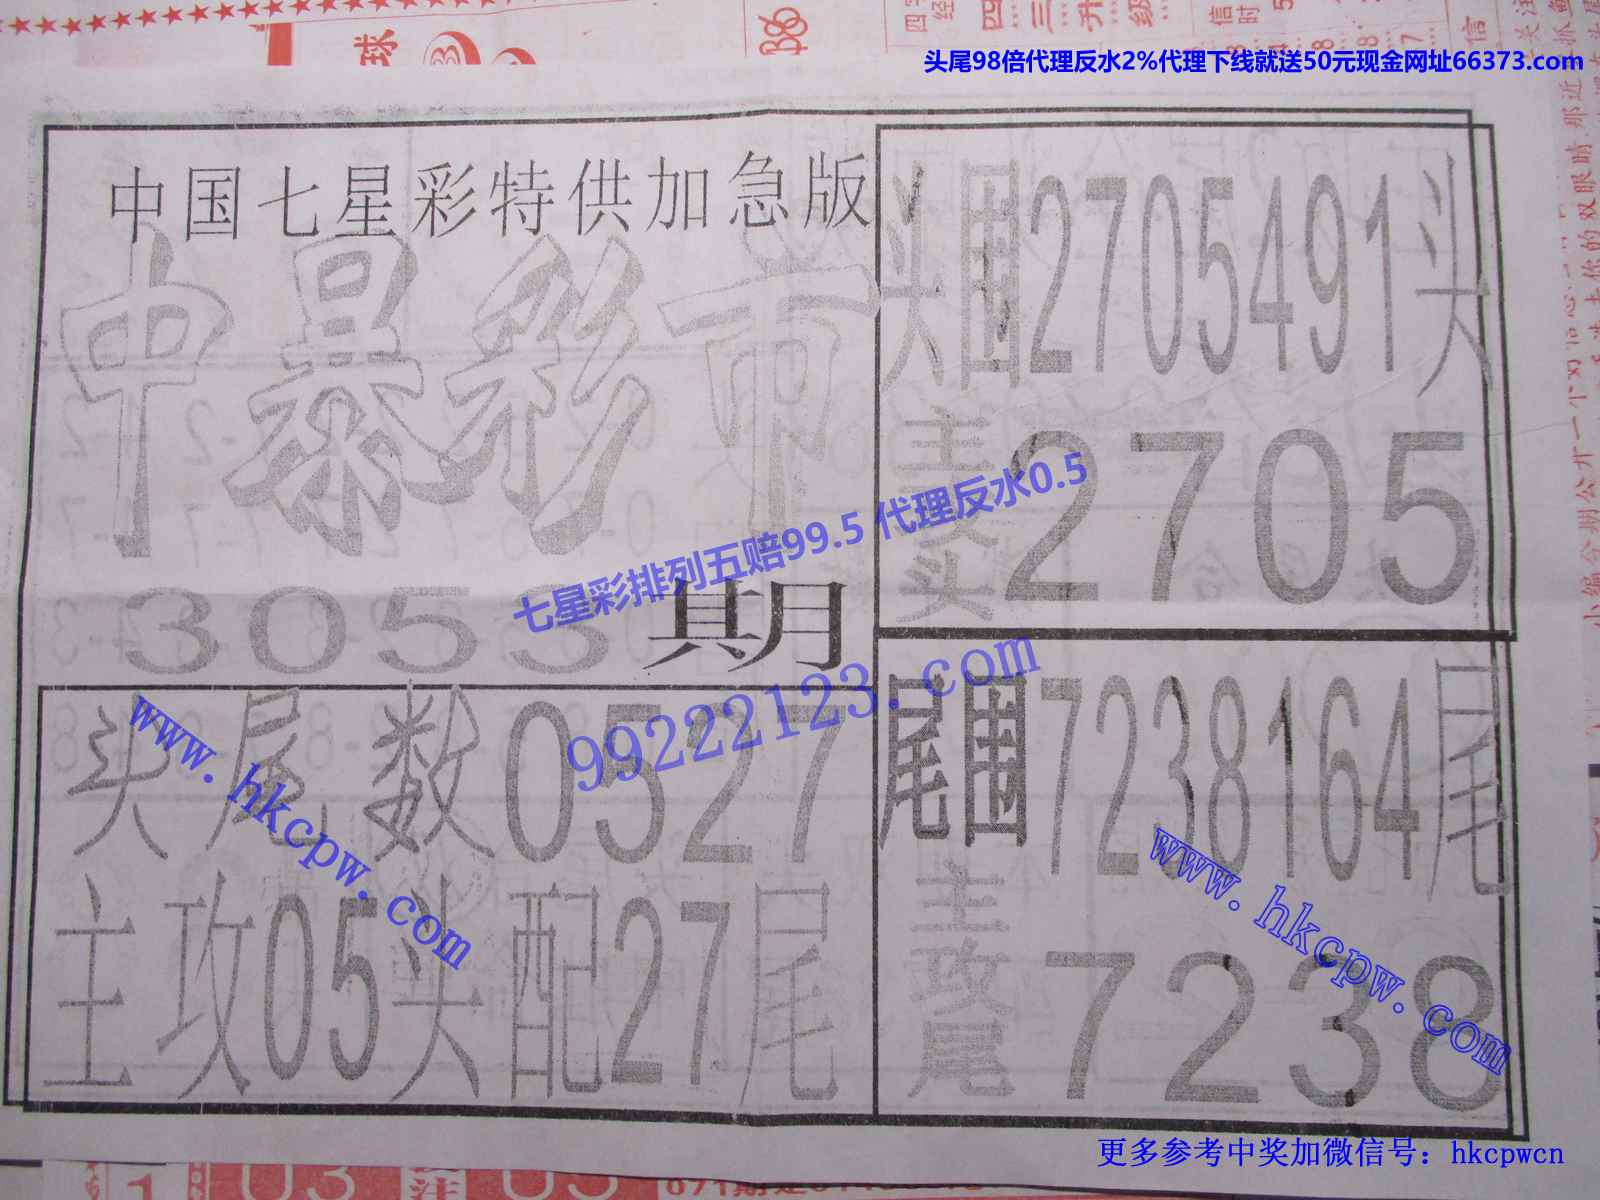 头尾98倍代理反水2%代理下线就送50元现金网址66373.com
中国七星彩特供加急版
中暴彩市
3053期
头围2705491头
主攻头2705
七星彩排列五赔99.5 代理反水0.5
99222123.com
头尾数0527
主攻05头配27尾
尾围7238164尾
主攻尾7238
www.hkcpw.com
www.hkcpw.com
更多参考中奖加微信号：hkcpwcn